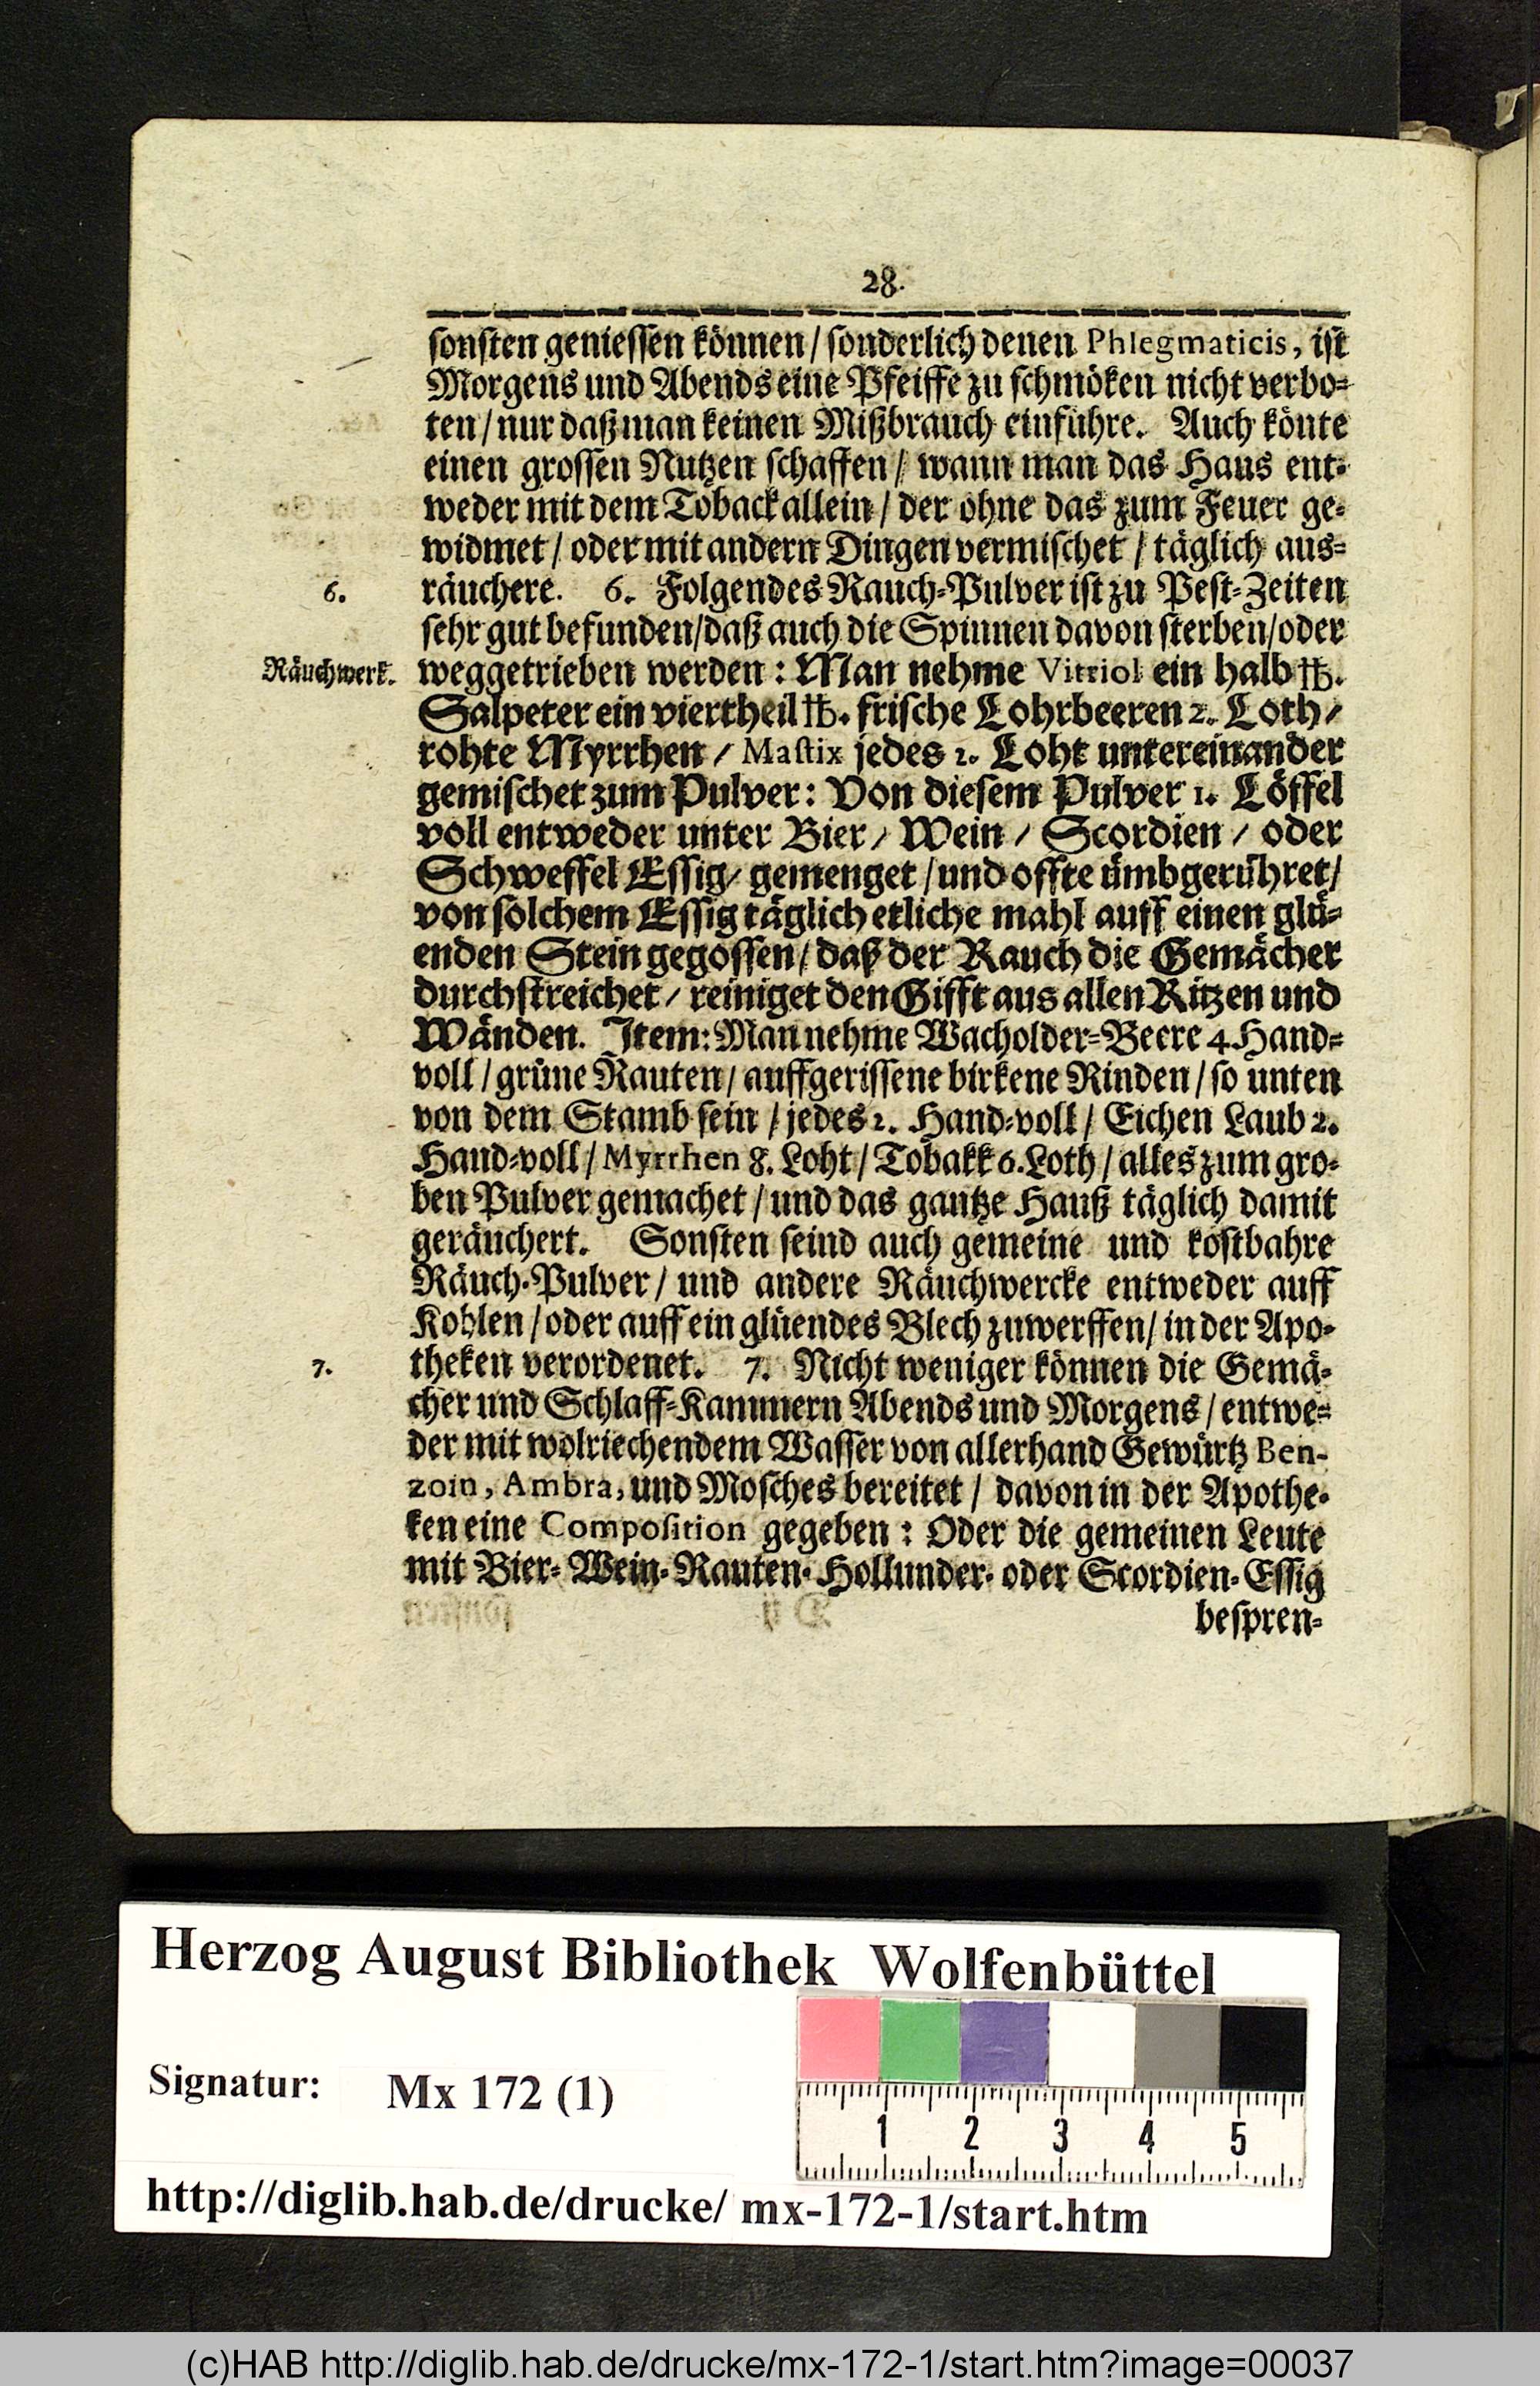 28.
sonsten geniessen können / sonderlich denen Phlegmaticis, ist
Morgens und Abends eine Pfeiffe zu schmöken nicht verbo-
ten / nur daß man keinen Mißbrauch einführe. Auch könte
einen grossen Nutzen schaffen / wann man das Haus ent-
weder mit dem Toback allein / der ohne das zum Feuer ge-
widmet / oder mit andern Dingen vermischet / täglich aus-
6. räuchere. 6. Folgendes Rauch-Pulver ist zu Pest-Zeiten
sehr gut befunden/daß auch die Spinnen davon sterben/oder
Räuchwerk. weggetrieben werden : Man nehme Vitriol ein halb ℔.
Salpeter ein viertheil ℔. frische Lohrbeeren 2. Loth /
rohte Myrrhen / Mastix jedes 1. Loht untereinander
gemischet zum Pulver : Von diesem Pulver 1. Löffel
voll entweder unter Bier / Wein / Scordien / oder
Schweffel Essig / gemenget / und offte ümbgerühret /
von solchem Essig täglich etliche mahl auff einen glü-
enden Stein gegossen / daß der Rauch die Gemächer
durchstreichet / reiniget den Gifft aus allen Ritzen und
Wänden. Item: Man nehme Wacholder-Beere 4. Hand-
voll / grüne Rauten / auffgerissene birkene Rinden / so unten
von dem Stamb sein / jedes 1. Hand-voll / Eichen Laub 2.
Hand-voll / Myrrhen 8. Loht / Tobakk 6. Loth / alles zum gro-
ben Pulver gemachet / und das gantze Hauß täglich damit
geräuchert. Sonsten seind auch gemeine und kostbahre
Räuch-Pulver / und andere Räuchwercke entweder auff
Kohlen / oder auff ein glüendes Blech zuwerffen / in der Apo-
7. theken verordenet. 7. Nicht weniger können die Gemä-
cher und Schlaff-Kammern Abends und Morgens / entwe-
der mit wolriechendem Wasser von allerhand Gewürtz Ben-
zoin, Ambra, und Mosches bereitet / davon in der Apothe-
ken eine Composition gegeben : Oder die gemeinen Leute
mit Bier- Wein- Rauten- Hollunder- oder Scordien- Essig
bespren-
Herzog August Bibliothek Wolfenbüttel
Signatur: Mx 172 (1)
1 2 3 4 5
http://diglib.hab.de/drucke/ mx-172-1/start.htm
(c)HAB http://diglib.hab.de/drucke/mx-172-1/start.htm?image=00037